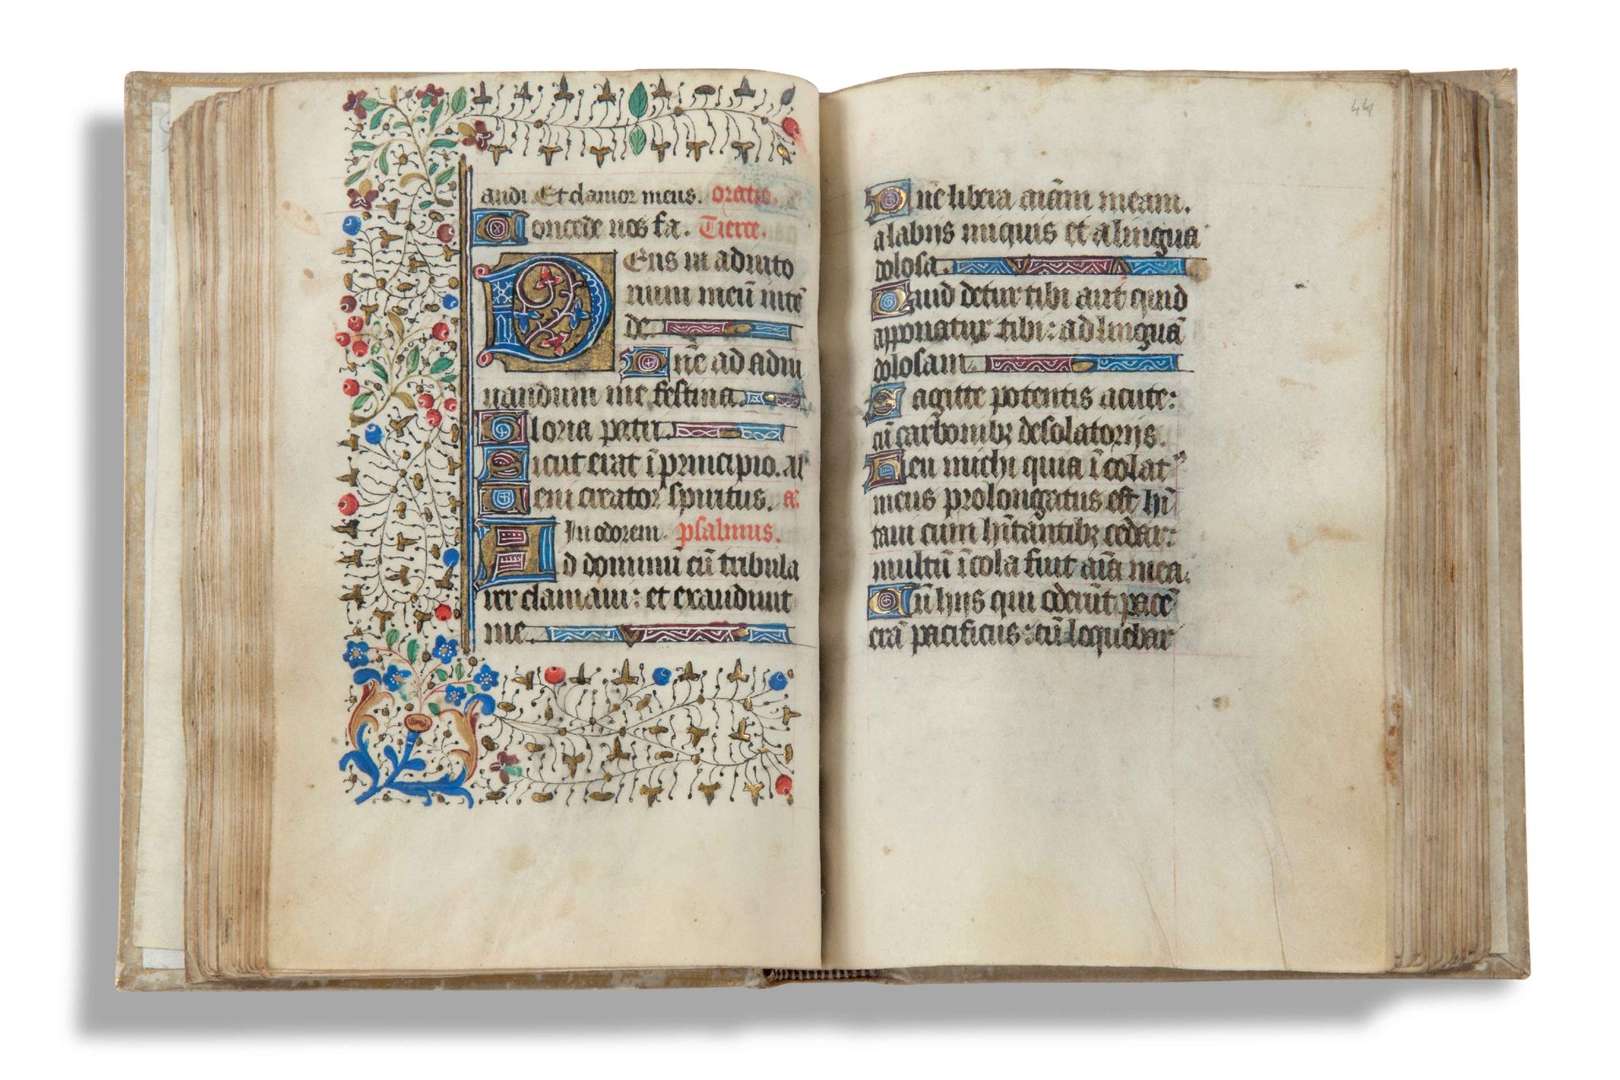 audi. Et clamor meus. oratio.
Concede nos fa. Tierce.
Deus in adiuto
rium meū inten
de
Dn̄e ad adiu
uandum me festina.
Gloria patri.
Sicut erat ī principio. al
Veni creator spiritus. a.
In odorem. psalmus.
Ad dominū cū tribula
rer clamaui: et exaudiuit
me.
44
Dn̄e libera aīam meam.
a labiis iniquis et a lingua
dolosa.
Quid detur tibi aut quid
apponatur tibi: ad linguā
dolosam.
Sagitte potentis acute:
cū carbonibꝫ desolatoriis.
Heu michi quia īcolatꝰ
meus prolongatus est hīt
taui cum hītantibꝫ cedar:
multū īcola fuit aīa mea.
Cū hiis qui oderūt pacē
erā pacificus: cū loquebar